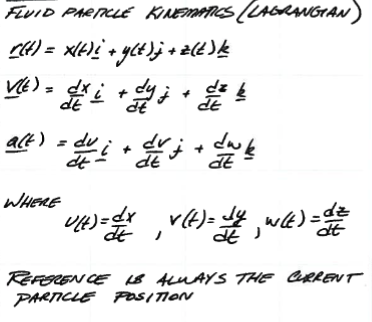 FLUID PARTICLE KINEMATICS (LAGRANGIAN)
r(t) = x(t)i + y(t)j + z(t)k
V(t) = dx/dt i + dy/dt j + dz/dt k
a(t) = du/dt i + dv/dt j + dw/dt k
WHERE
U(t) = dx/dt , v(t) = dy/dt , w(t) = dz/dt
REFERENCE IS ALWAYS THE CURRENT
PARTICLE POSITION